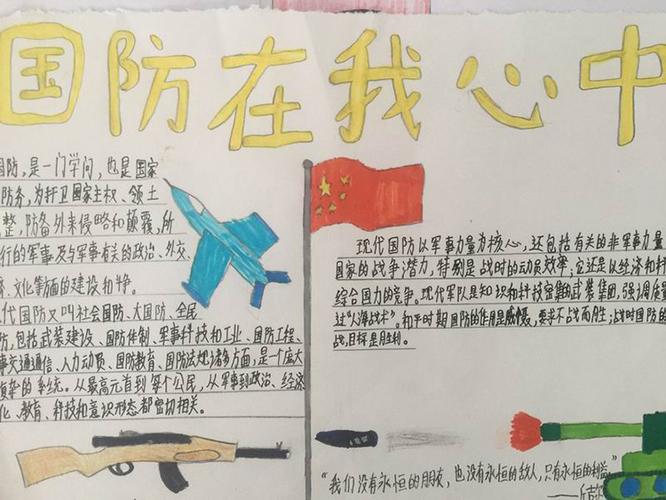 国防在我心中
国防，是一门学问，也是国家
防务，为扞卫国家主权、领土
整，防备外来侵略和颠覆，所
行的军事及与军事有关的政治、外交、
文化等方面的建设和斗争。
代国防又叫社会国防、大国防、全民
防，包括武装建设、国防体制、军事科技和工业、国防工程、
事交通通信、人力动员、国防教育、国防法规诸多方面，是一个庞大
复杂的系统。从最高元首到每个公民，从军事到政治、经济
化、教育、科技和意识形态都密切相关。
现代国防以军事力量为核心，还包括有关的非军事力量
国家的战争潜力，特别是战时的动员效率，它还是以经济和科
综合国力的竞争。现代军队是知识和科技密集的武装集团，强调质量
过"人海战术"。和平时期国防的作用是威慑，要求不战而胜；战时国防的
战，目标是胜利。
"我们没有永恒的朋友，也没有永恒的敌人，只有永恒的利益"